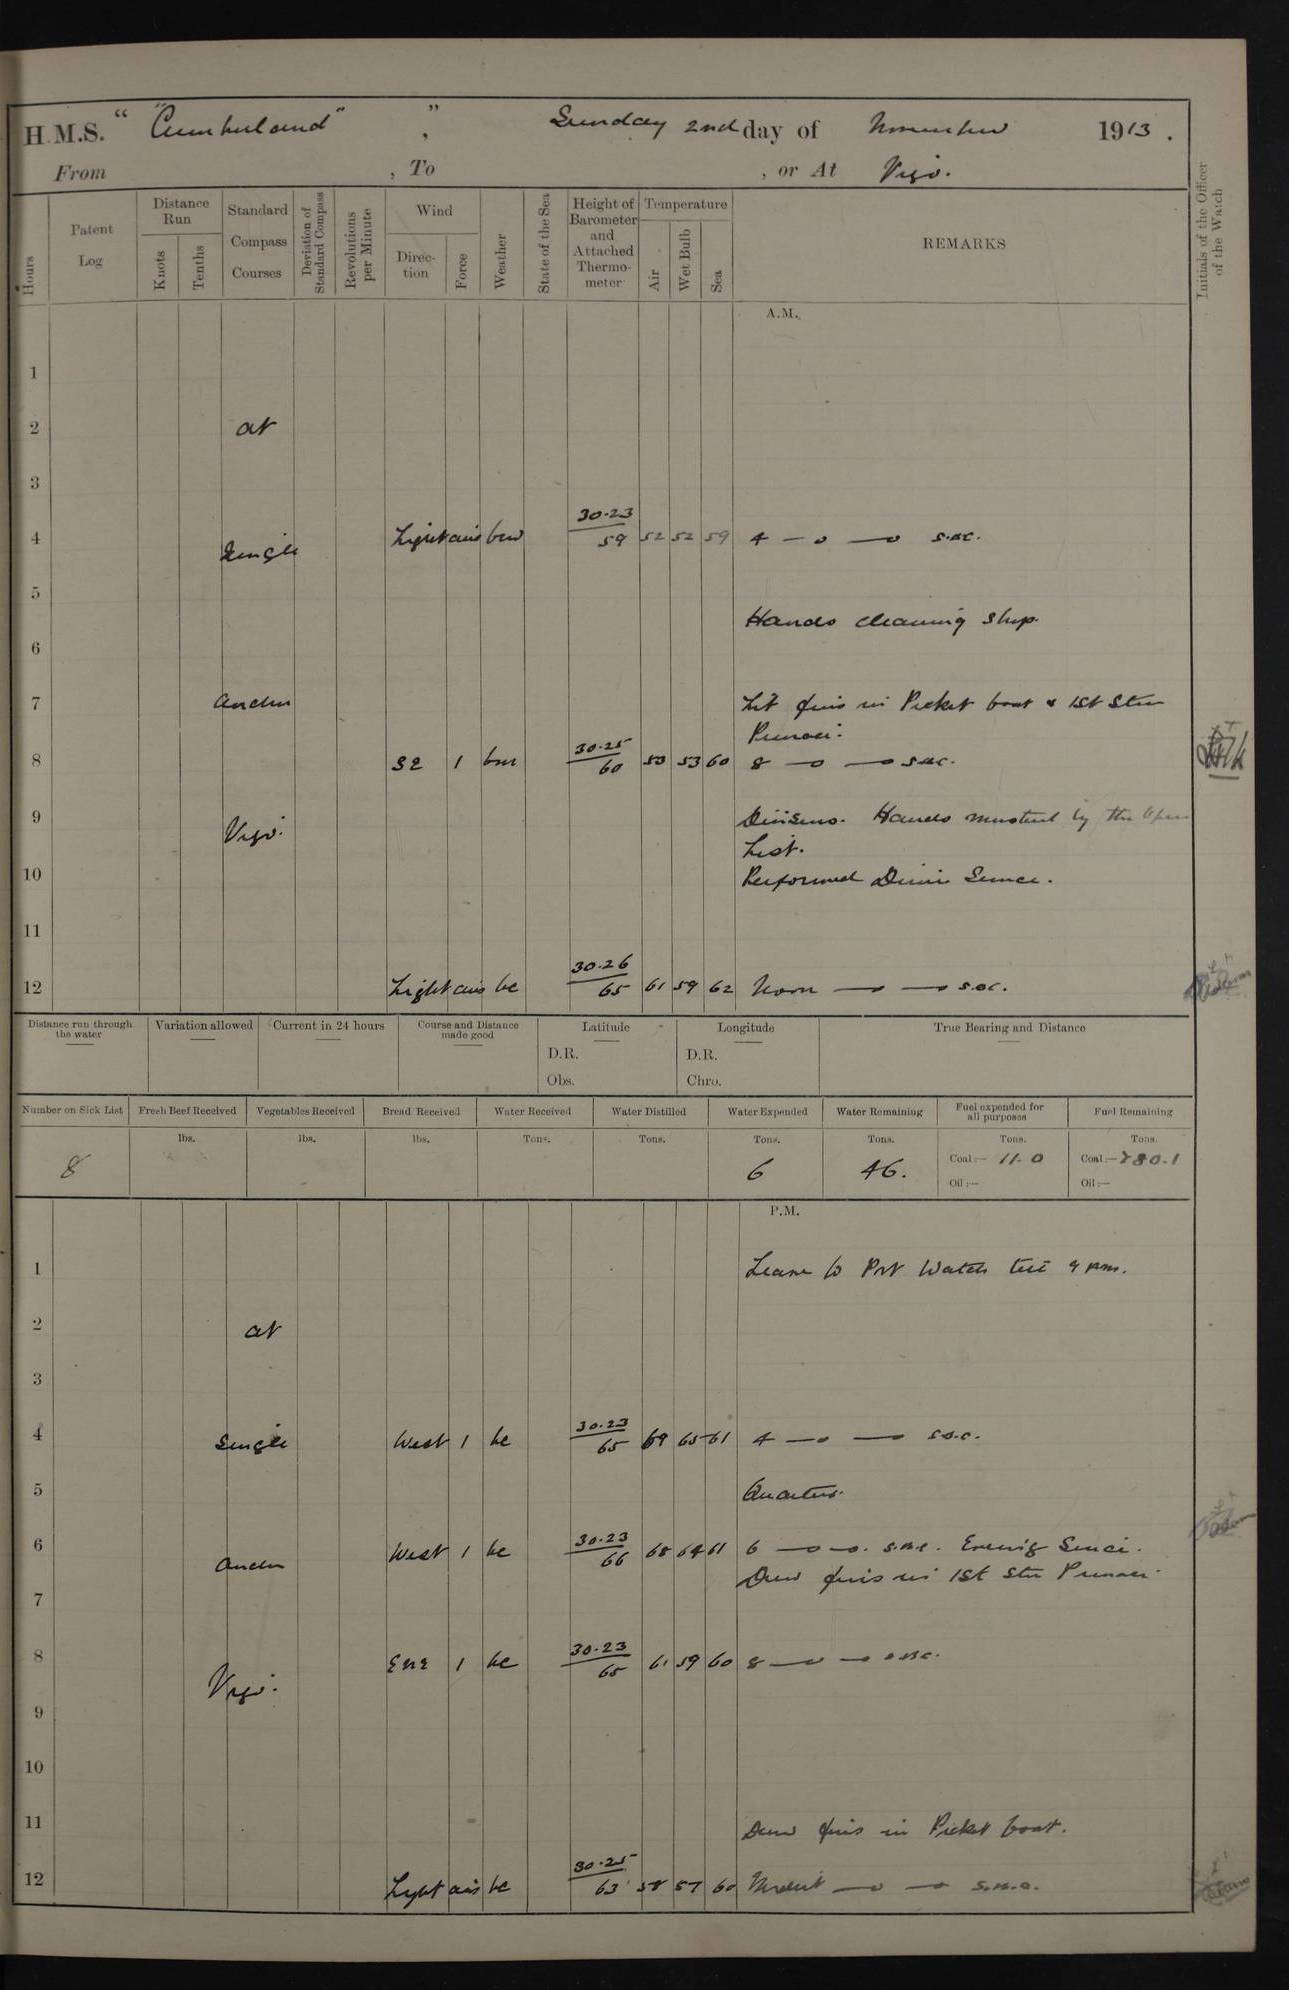 H.M.S. " "Cumberland" " , Sunday 2nd day of November 1913.
From , To , or At Vigo.
Hours
Patent Log
Distance Run
Knots
Tenths
Standard Compass Courses
Deviation of Standard Compass
Revolutions per Minute
Wind
Direction
Force
Weather
State of the Sea
Height of Barometer and Attached Thermometer
Temperature
Air
Wet Bulb
Sea
REMARKS
Initials of the Officer of the Watch
A.M.
1
2 at
3
4 Single Light airs bcw 30.23 59 52 52 59 4 — o — o
5
Hands cleaning ship.
6
7 anchor Lit fires in Picket boat & 1st Stm
Pinnace.
8 SE 1 30.25 60 53 53 60 8 — o — o
9 Vigo. Divisions. Hands mustered by the Open
List.
10 Performed Divine Service.
11
12 Light airs bc 30.26 65 61 59 62 Noon — o — o
Distance run through the water
Variation allowed
Current in 24 hours
Course and Distance made good
Latitude
D.R.
Obs.
Longitude
D.R.
Chro.
True Bearing and Distance
Number on Sick List
Fresh Beef Received
Vegetables Received
Bread Received
Water Received
Water Distilled
Water Expended
Water Remaining
Fuel expended for all purposes
Fuel Remaining
lbs. lbs. lbs. Tons. Tons. Tons. Tons. Tons. Tons.
8 6 46. Coal:— 11.0 Coal:— 780.1
Oil:— Oil:—
P.M.
1 Leave to Port Watch till 9 pm.
2 at
3
4 Single West 1 bc 30.23 65 69 65 61 4 — o — o
5 Quarters.
6 anchor West 1 bc 30.23 66 68 64 61 6 — o — o. Evening Service.
Drew fires in 1st Stm Pinnace.
7
8 Vigo. ENE 1 bc 30.23 65 61 59 60 8 — o — o
9
10
11 Drew fires in Picket boat.
12 Light airs bc 30.25 63 58 57 60 Midnt — o — o